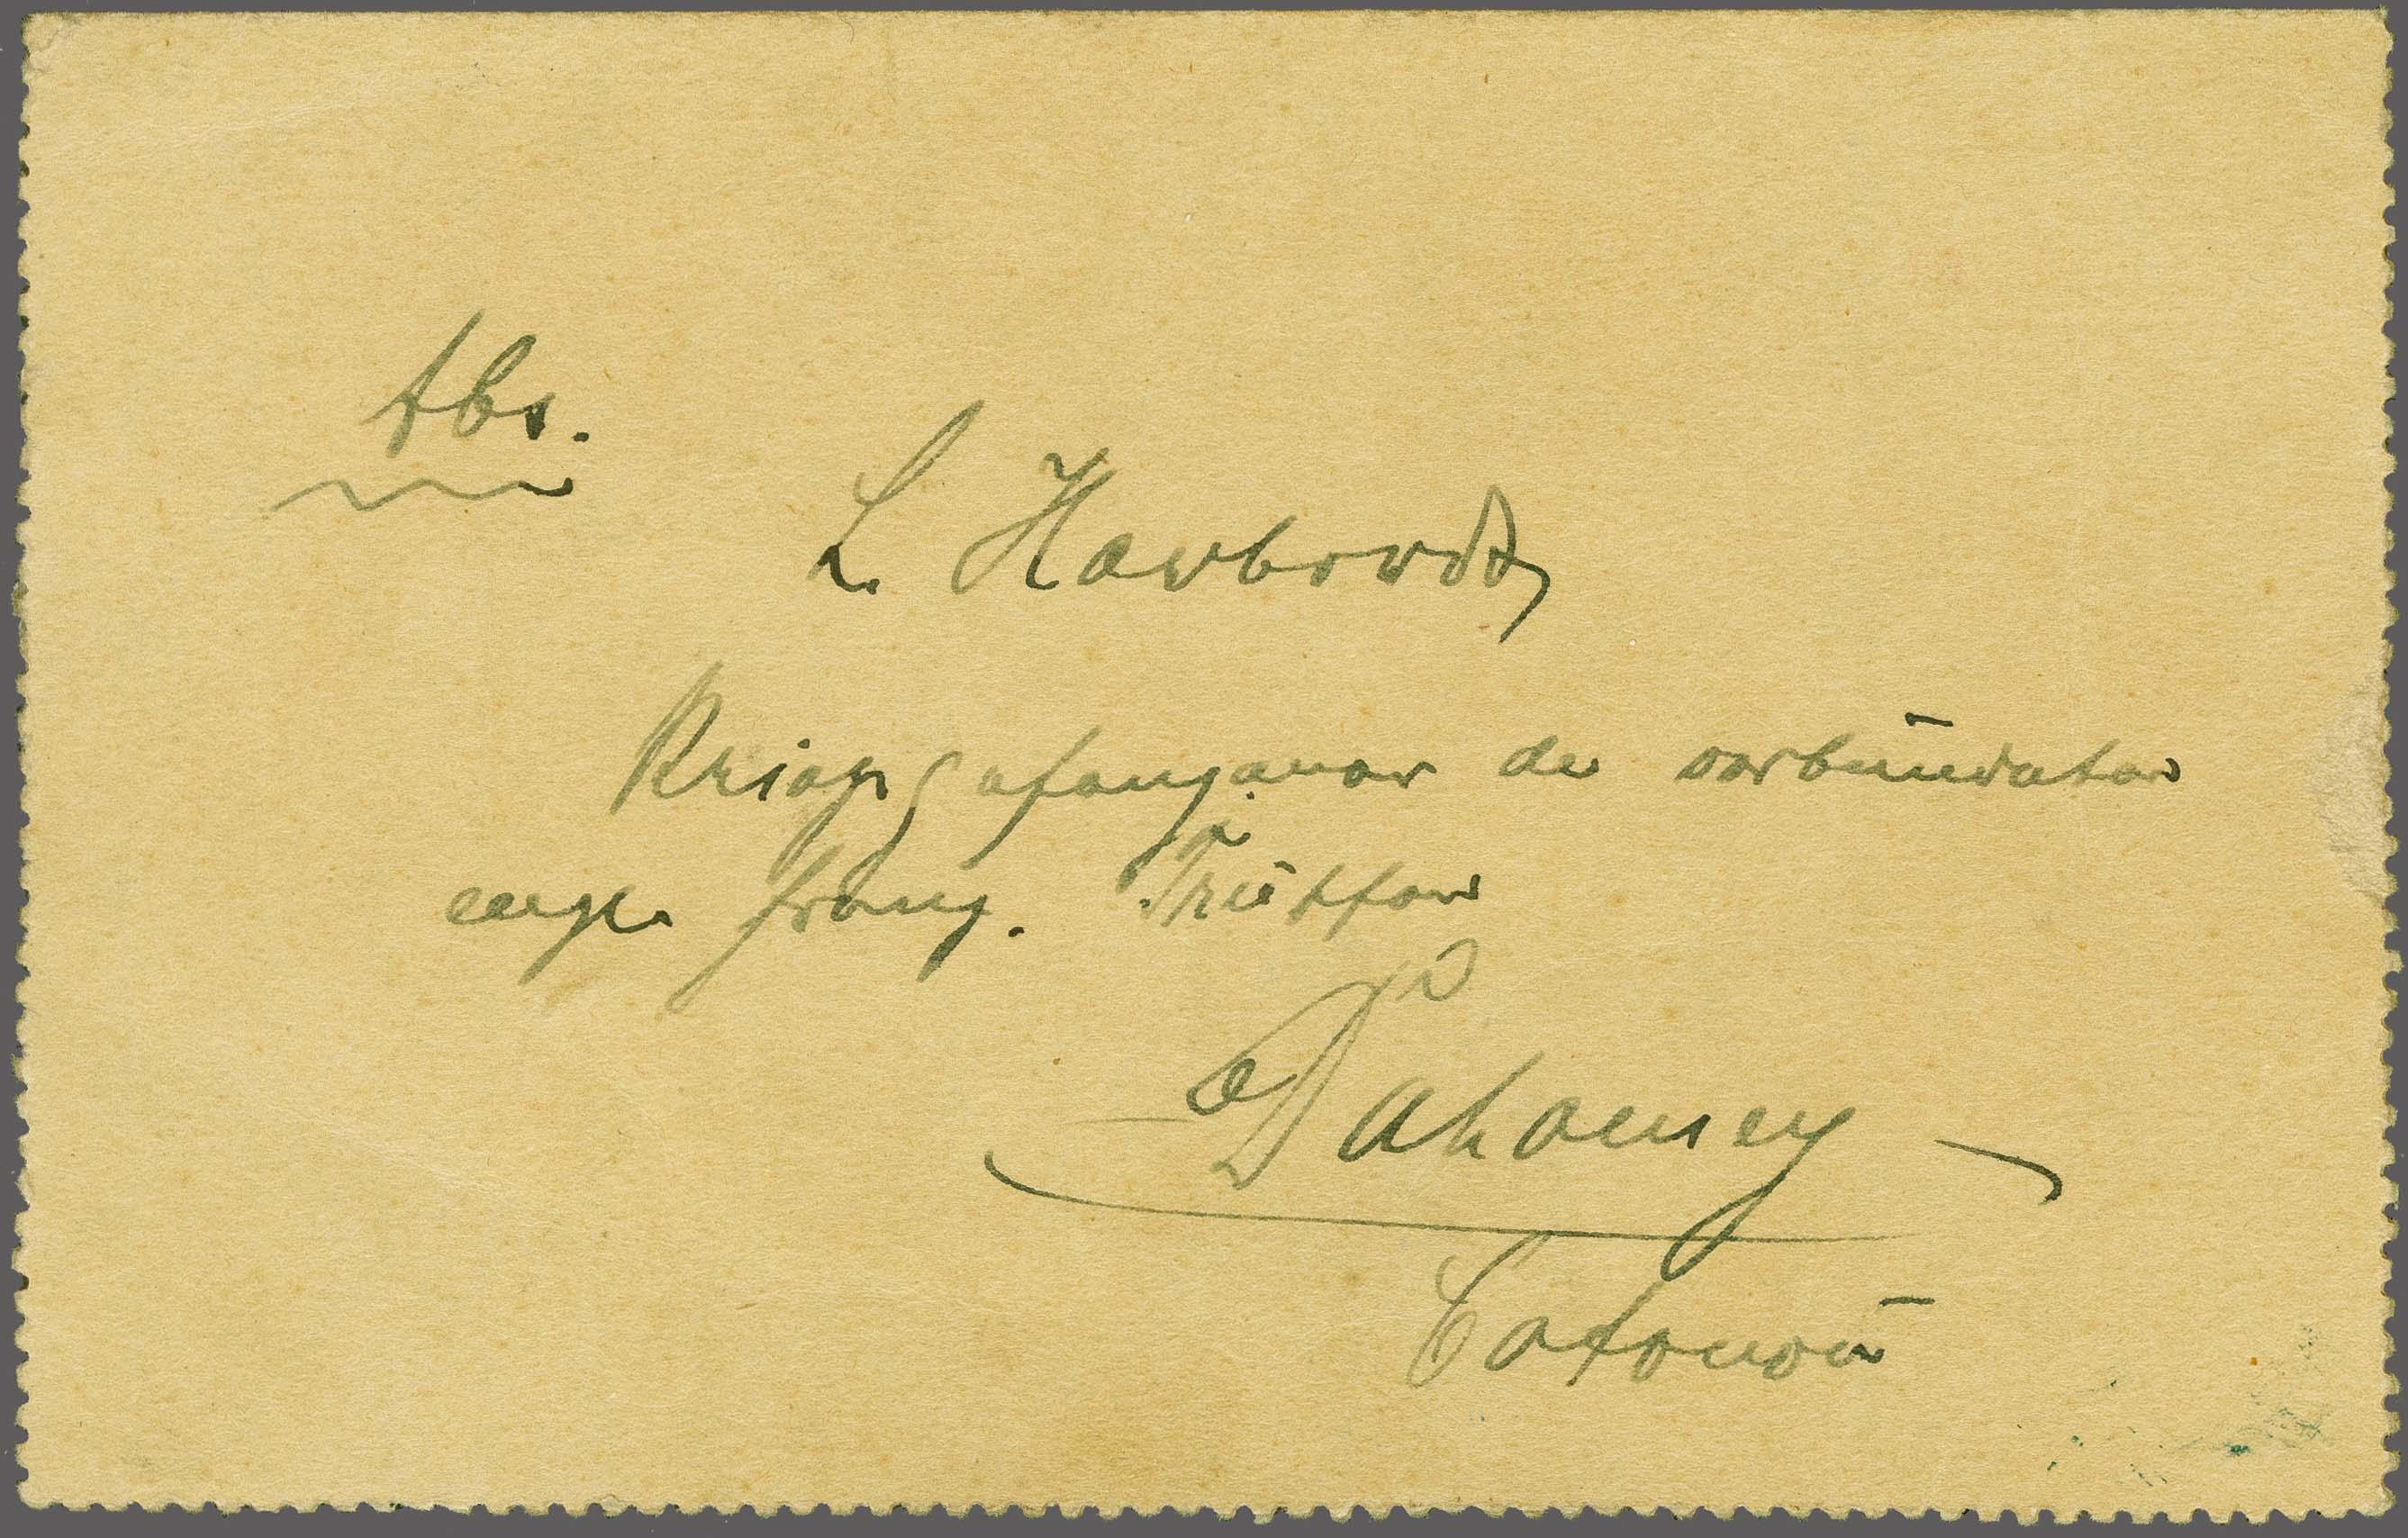 Abs.
L. Harbordt,
Kriegsgefangener der verbündeten
engl. franz. Truppen
Dahomey
Cotonou